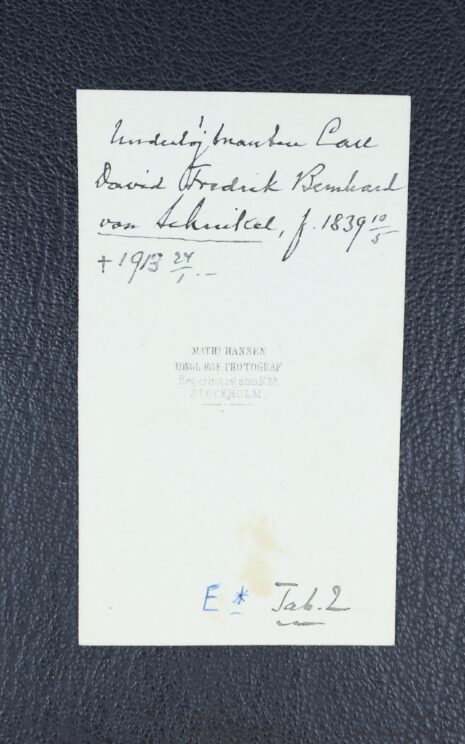 Underlöjtnanten Carl
David Fredrik Bernhard
von Schinkel, f. 1839 10/5
+ 1913 24/1. —
MATHS HANSEN
KONGL. HOF PHOTOGRAF
Regeringsgatan
STOCKHOLM.
E * Tab. 2